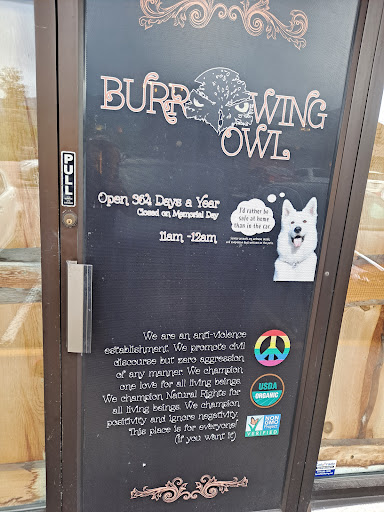 BURROWING
OWL
PULL
Open 364 Days a Year
Closed on Memorial Day
11am -12am
I'd rather be
safe at home
than in the car.
We are an anti-violence
establishment. We promote civil
discourse but zero aggression
of any manner. We champion
one love for all living beings.
We champion Natural Rights for
all living beings. We champion
positivity and ignore negativity.
This place is for everyone!
(If you want it)
USDA
ORGANIC
NON
GMO
Project
VERIFIED